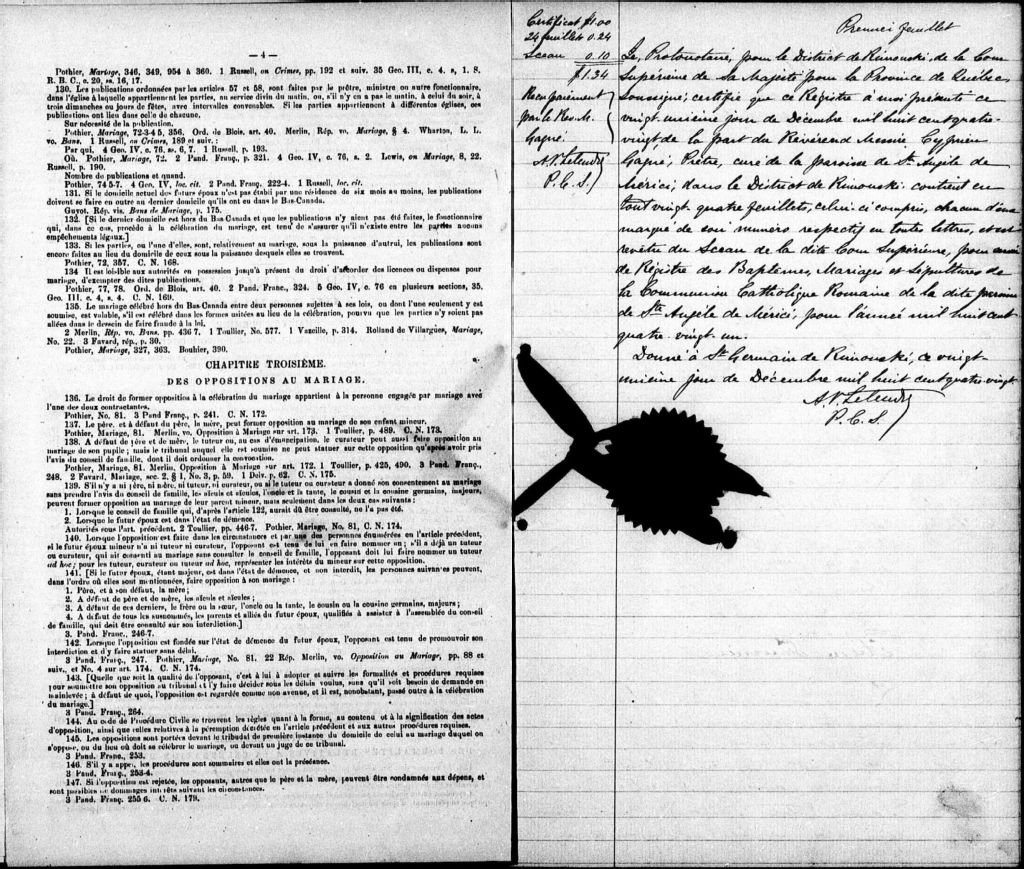 — 4 —
Pothier, Mariage, 346, 349, 954 à 360. 1 Russell, on Crimes, pp. 192 et suiv. 35 Geo. III, c. 4. s, 1. S.
R. B. C., c. 20, ss. 16, 17.
130. Les publications ordonnées par les articles 57 et 58, sont faites par le prêtre, ministre ou autre fonctionnaire,
dans l'église à laquelle appartiennent les parties, au service divin du matin, ou, s'il n'y en a pas le matin, à celui du soir, à
trois dimanches ou jours de fêtes, avec intervalles convenables. Si les parties appartiennent à différentes églises, ces
publications ont lieu dans celle de chacune.
Sur nécessité de la publication.
Pothier, Mariage, 72-3-4 5, 356. Ord. de Blois, art. 40. Merlin, Rép. vo. Mariage, § 4. Wharton, L. L.
vo. Bans. 1 Russell, on Crimes, 189 et suiv. :
Par qui, 4 Geo. IV, c. 76, ss. 6, 7. 1 Russell, p. 193.
Où. Pothier, Mariage, 72. 2 Pand. Franç., p. 321. 4 Geo. IV, c. 76, s. 2. Lewis, on Mariage, 8, 22.
Russell, p. 190.
Nombre de publications et quand.
Pothier, 74 5-7. 4 Geo. IV, loc. cit. 2 Pand. Franç. 222-4. 1 Russell, loc. cit.
131. Si le domicile actuel des futurs époux n'est pas établi par une résidence de six mois au moins, les publications
doivent se faire en outre au dernier domicile qu'ils ont eu dans le Bas-Canada.
Guyot. Rép. vis. Bans de Mariage, p. 175.
132. [Si le dernier domicile est hors du Bas-Canada et que les publications n'y aient pas été faites, le fonctionnaire
qui, dans ce cas, procède à la célébration du mariage, est tenu de s'assurer qu'il n'existe entre les parties aucuns
empêchements légaux.]
133. Si les parties, ou l'une d'elles, sont, relativement au mariage, sous la puissance d'autrui, les publications sont
encore faites au lieu du domicile de ceux sous la puissance desquels elles se trouvent.
Pothier, 72, 357. C. N. 168.
134 Il est loisible aux autorités en possession jusqu'à présent du droit d'accorder des licences ou dispenses pour
mariage, d'exempter des dites publications.
Pothier, 77, 78. Ord. de Blois, art. 40. 2 Pand. Franc., 324. 5 Geo. IV, c. 76 en plusieurs sections, 35.
Geo. III. c. 4, s. 4. C. N. 169.
135. Le mariage célébré hors du Bas-Canada entre deux personnes sujettes à ses lois, ou dont l'une seulement y est
soumise, est valable, s'il est célébré dans les formes usitées au lieu de la célébration, pourvu que les parties n'y soient
pas aliées dans le dessein de faire fraude à la loi.
2 Merlin, Rép. vo. Bans. pp. 436 7. 1 Toullier, No. 577. 1 Vazeille, p. 314. Rolland de Villargues, Mariage,
No. 22. 3 Favard, rép., p. 30.
Pothier, Mariage, 327, 363. Bouhier, 390.
CHAPITRE TROISIÈME.
DES OPPOSITIONS AU MARIAGE.
136. Le droit de former opposition à la célébration du mariage appartient à la personne engagée par mariage avec
l'une des deux contractantes.
Pothier, No. 81. 3 Pand Franç., p. 241. C. N. 172.
137. Le père, et à défaut du père, la mère, peut former opposition au mariage de son enfant mineur.
Pothier, Mariage, 81. Merlin, vo. Opposition à Mariage sur art. 173. 1 Toullier, p. 489. C. N. 173.
138. A défaut de père et de mère, le tuteur ou, au cas d'émancipation, le curateur peut aussi faire opposition au
mariage de son pupille ; mais le tribunal auquel elle est soumise ne peut statuer sur cette opposition qu'après avoir pris
l'avis du conseil de famille, dont il doit ordonner la convocation.
Pothier, Mariage, 81. Merlin, Opposition à Mariage sur art. 172. 1 Toullier, p. 425, 490. 3 Pand. Franç.,
248. 2 Favard, Mariage, sec. 2. § 1, No. 3, p. 59. 1 Delv. p. 62. C. N. 175.
139. S'il n'y a ni père, ni mère, ni tuteur, ni curateur, ou si le tuteur ou curateur a donné son consentement au mariage
sans prendre l'avis du conseil de famille, les aïeuls et aïeules, l'oncle et la tante, le cousin et la cousine germains, majeurs,
peuvent former opposition au mariage de leur parent mineur, mais seulement dans les deux cas suivants :
1. Lorsque le conseil de famille qui, d'après l'article 122, aurait dû être consulté, ne l'a pas été.
2. Lorsque le futur époux est dans l'état de démence.
Autorités sous l'art. précédent. 2 Toullier, pp. 446-7. Pothier, Mariage, No. 81, C. N. 174.
140. Lorsque l'opposition est faite dans les circonstances et par une des personnes énumérées en l'article précédent,
si le futur époux mineur n'a ni tuteur ni curateur, l'opposant est tenu de lui en faire nommer un ; s'il a déjà un tuteur
ou curateur, qui ait consenti au mariage sans consulter le conseil de famille, l'opposant doit lui faire nommer un tuteur
ad hoc ; pour les tuteur, curateur ou tuteur ad hoc, représenter les intérêts du mineur sur cette opposition.
141. [Si le futur époux, étant majeur, est dans l'état de démence, et non interdit, les personnes suivantes peuvent,
dans l'ordre où elles sont mentionnées, faire opposition à son mariage :
1. Père, et à son défaut, la mère ;
2. A défaut de père et de mère, les aïeuls et aïeules ;
3. A défaut de ces derniers, le frère ou la sœur, l'oncle ou la tante, le cousin ou la cousine germains, majeurs ;
4. A défaut de tous les susnommés, les parents et alliés du futur époux, qualifiés à assister à l'assemblée du conseil
de famille, qui doit être consulté sur son interdiction.]
3. Pand. Franc., 246-7.
142. Lorsque l'opposition est fondée sur l'état de démence du futur époux, l'opposant est tenu de promouvoir son
interdiction et d'y faire statuer sans délai.
3 Pand. Franç., 247. Pothier, Mariage, No. 81. 22 Rép. Merlin, vo. Opposition au Mariage, pp. 88 et
suiv., et No. 4 sur art. 174. C. N. 174.
143. [Quelle que soit la qualité de l'opposant, c'est à lui à adopter et suivre les formalités et procédures requises
pour soumettre son opposition au tribunal et l'y faire décider sous les délais voulus, sans qu'il soit besoin de demande en
mainlevée ; à défaut de quoi, l'opposition est regardée comme non avenue, et il est, nonobstant, passé outre à la célébration
du mariage.]
3 Pand. Franç., 264.
144. Au code de Procédure Civile se trouvent les règles quant à la forme, au contenu et à la signification des actes
d'opposition, ainsi que celles relatives à la péremption décrétée en l'article précédent et aux autres procédures requises.
145. Les oppositions sont portées devant le tribunal de première instance du domicile de celui au mariage duquel on
s'oppose, ou du lieu où doit se célébrer le mariage, ou devant un juge de ce tribunal.
3 Pand. Franc., 253.
146. S'il y a appel, les procédures sont sommaires et elles ont la préséance.
3 Pand. Franç., 253-4.
147. Si l'opposition est rejetée, les opposants, autres que le père et la mère, peuvent être condamnés aux dépens, et
sont passibles de dommages intérêts suivant les circonstances.
3 Pand. Franç. 255 6. C. N. 179.
Certificat $1.00
24 feuillets 0.24
Sceau 0.10
$1.34
Reçu paiement
par le Rév. M.
Gagné
A. P. Letendre
P. C. S.
Premier feuillet
Le, Protonotaire, pour le District de Rimouski, de la Cour
Supérieure de Sa Majesté pour la Province de Québec,
Soussigné; certifie que ce Régistre à moi présenté ce
vingt-unième jour de Décembre mil huit cent quatre-
vingt de la part du Révérend Messire Cyprien
Gagné, Prêtre, curé de la paroisse de Ste Angèle de
Mérici, dans le District de Rimouski. contient en
tout vingt-quatre feuillets, celui-ci compris, chacun d'eux
marqué de son numéro respectif en toutes lettres, et est
revêtu du Sceau de la dite Cour Supérieure, pour servir
de Régistre des Baptêmes, Mariages et Sépultures de
la Communion Catholique Romaine de la dite paroisse
de Ste Angèle de Mérici, pour l'année mil huit cent
quatre-vingt-un.
Donné à St Germain de Rimouski, ce vingt-
unième jour de Décembre mil huit cent quatre-vingt
A. P. Letendre
P. C. S.